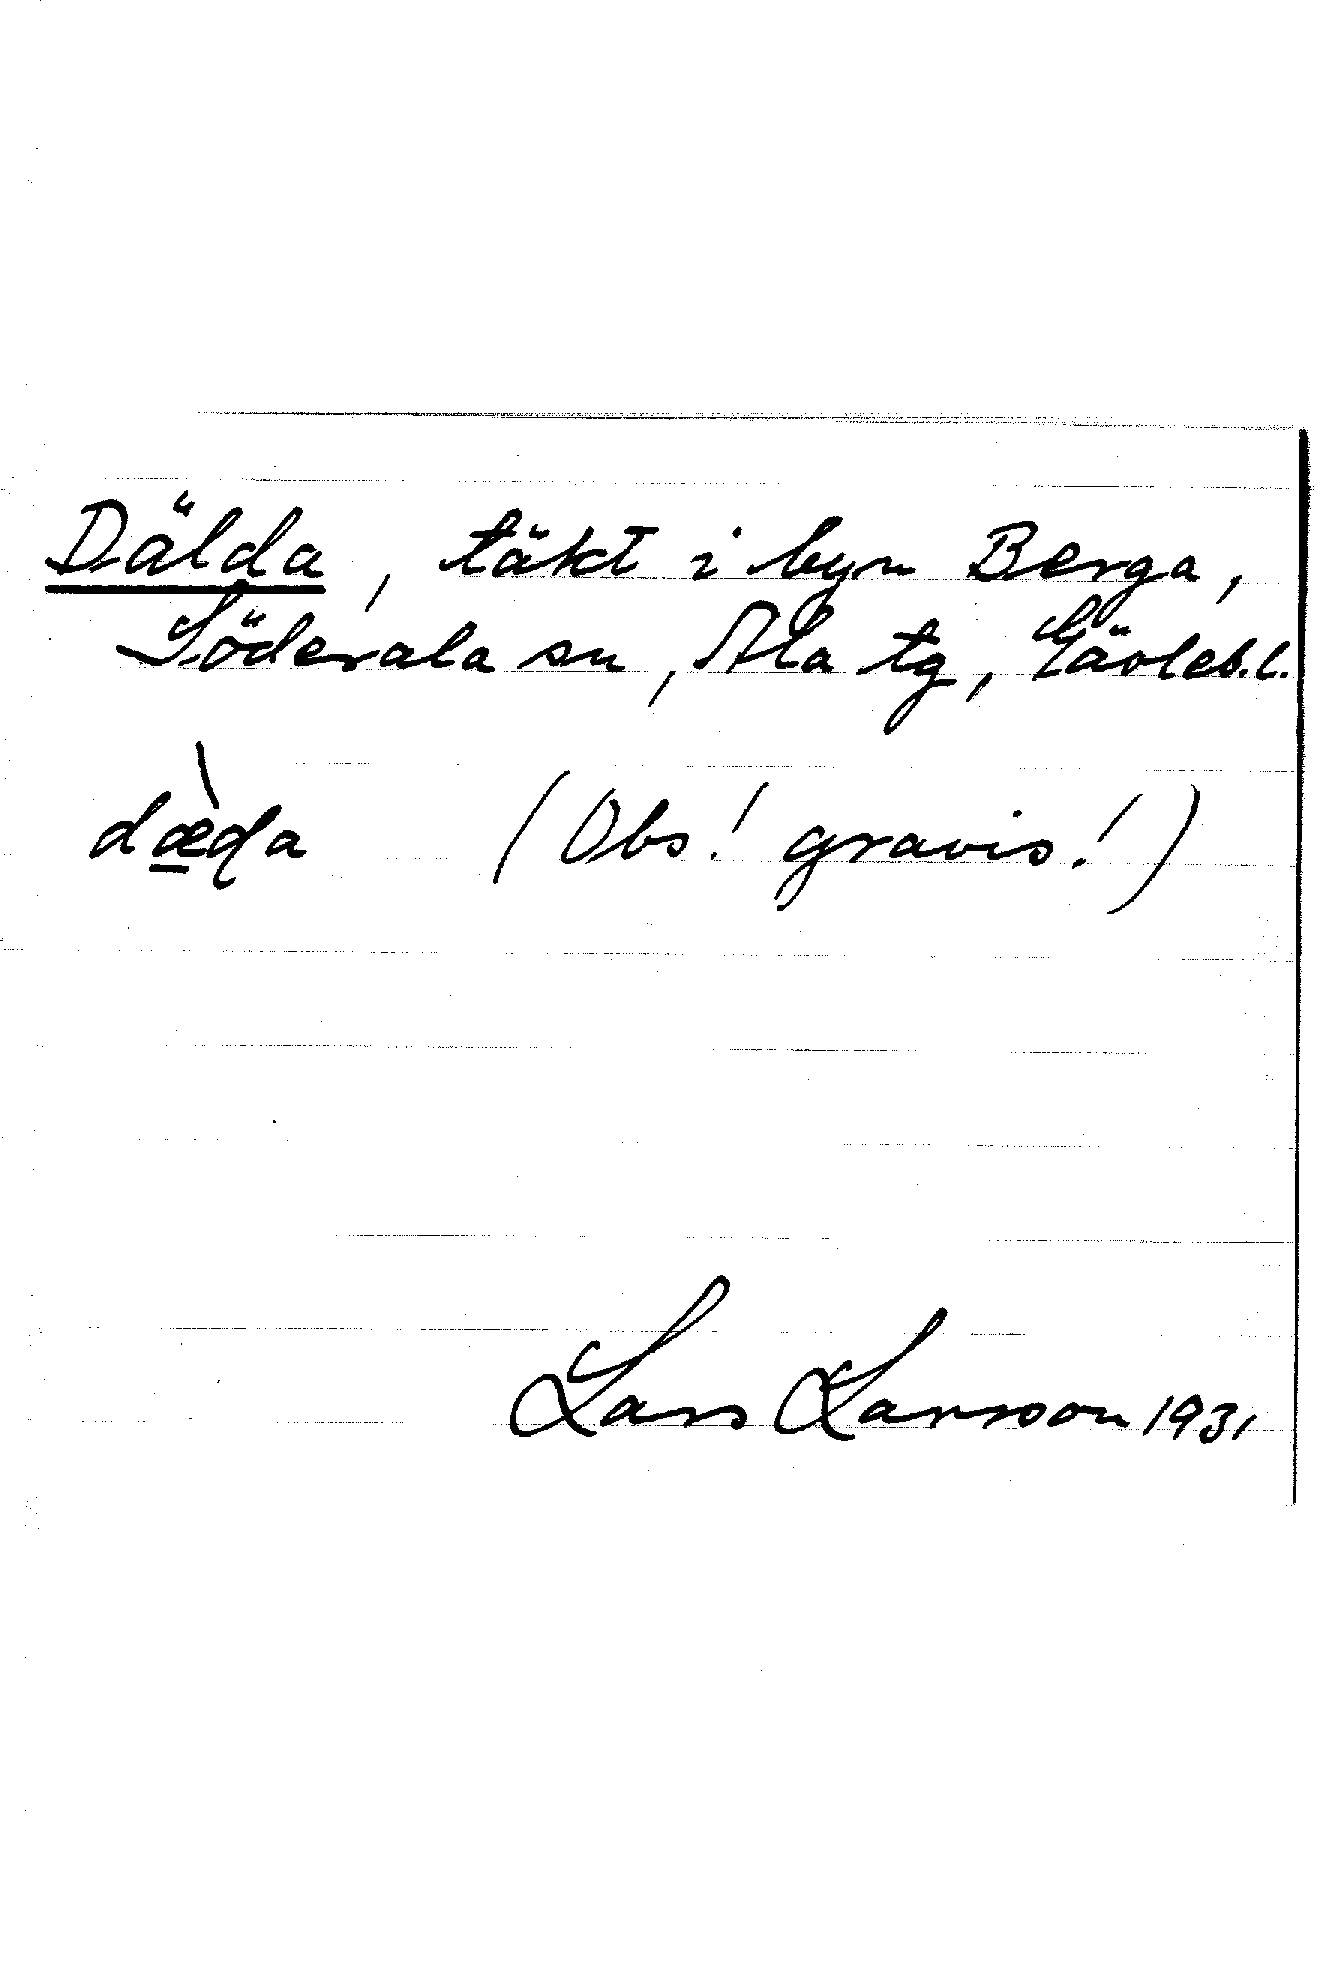 Dälda, täkt i byn Berga,
Söderala sn, Ala tg, Gävleb.l.
dæ̱̀ɖa (Obs! gravis!)
Lars Larsson 1931